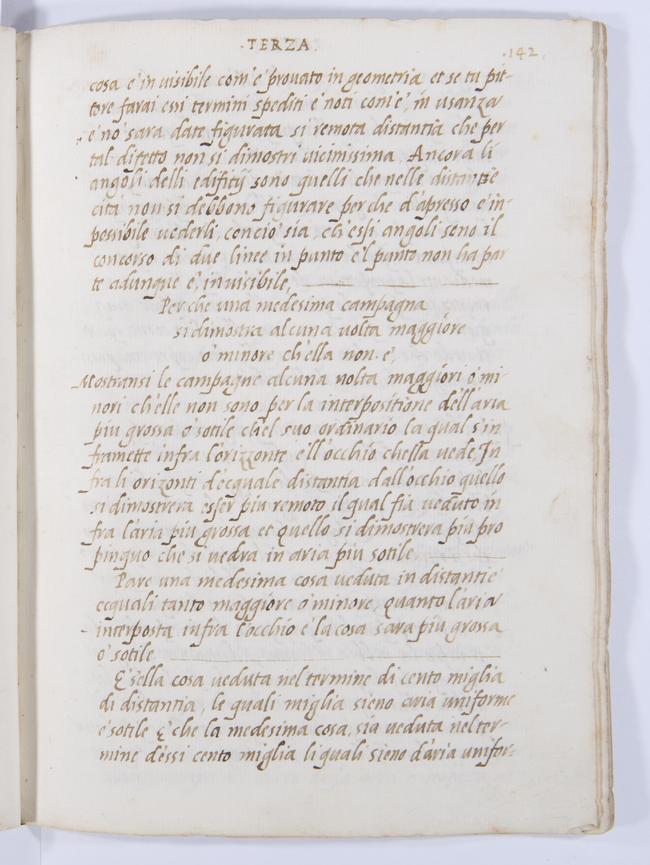 ·TERZA·
·142·
cosa e' invisibile com'e' provato in geometria et se tu pit-
tore farai essi termini spediti e' noti com'e', in usanza
e' nō sara date figurata si remota distantia che per
tal difetto non si dimostri vicinissima. Ancora li
angoli delli edifitij sono quelli che nelle distantie
cita non si debbono figurare perche d'apresso e' in-
possibile vederli, concio sia, ch'essi angoli sono il
concorso di due linee in punto e'l punto non ha par
te adunque e', invisibile,
Perche una medesima campagna
si dimostra alcuna volta maggiore
o' minore ch'ella non e',
Mostransi le campagne alcuna volta maggiori o' mi
nori ch'elle non sono per la interpositione dell'aria
piu grossa o' sotile che'l suo ordinario la qual s'in
framette infra l'orizzonte e ll'occhio chella vede, In
fra li orizonti d'equale distantia dall'occhio quello
si dimostrera esser piu remoto il qual fia veduto in
fra l'aria piu grossa et quello si dimostrera piu pro
pinquo che si vedra in aria piu sotile
Pare una medesima cosa veduta in distantie
equali tanto maggiore o' minore, quanto l'aria
interposta infra l'occhio e la cosa sara piu grossa
o' sotile
E' sella cosa veduta nel termine di cento miglia
di distantia, le quali miglia sieno aria uniforme
e' sotile E' che la medesima cosa, sia veduta nel ter-
mine d'essi cento miglia li quali sieno d'aria unifor-